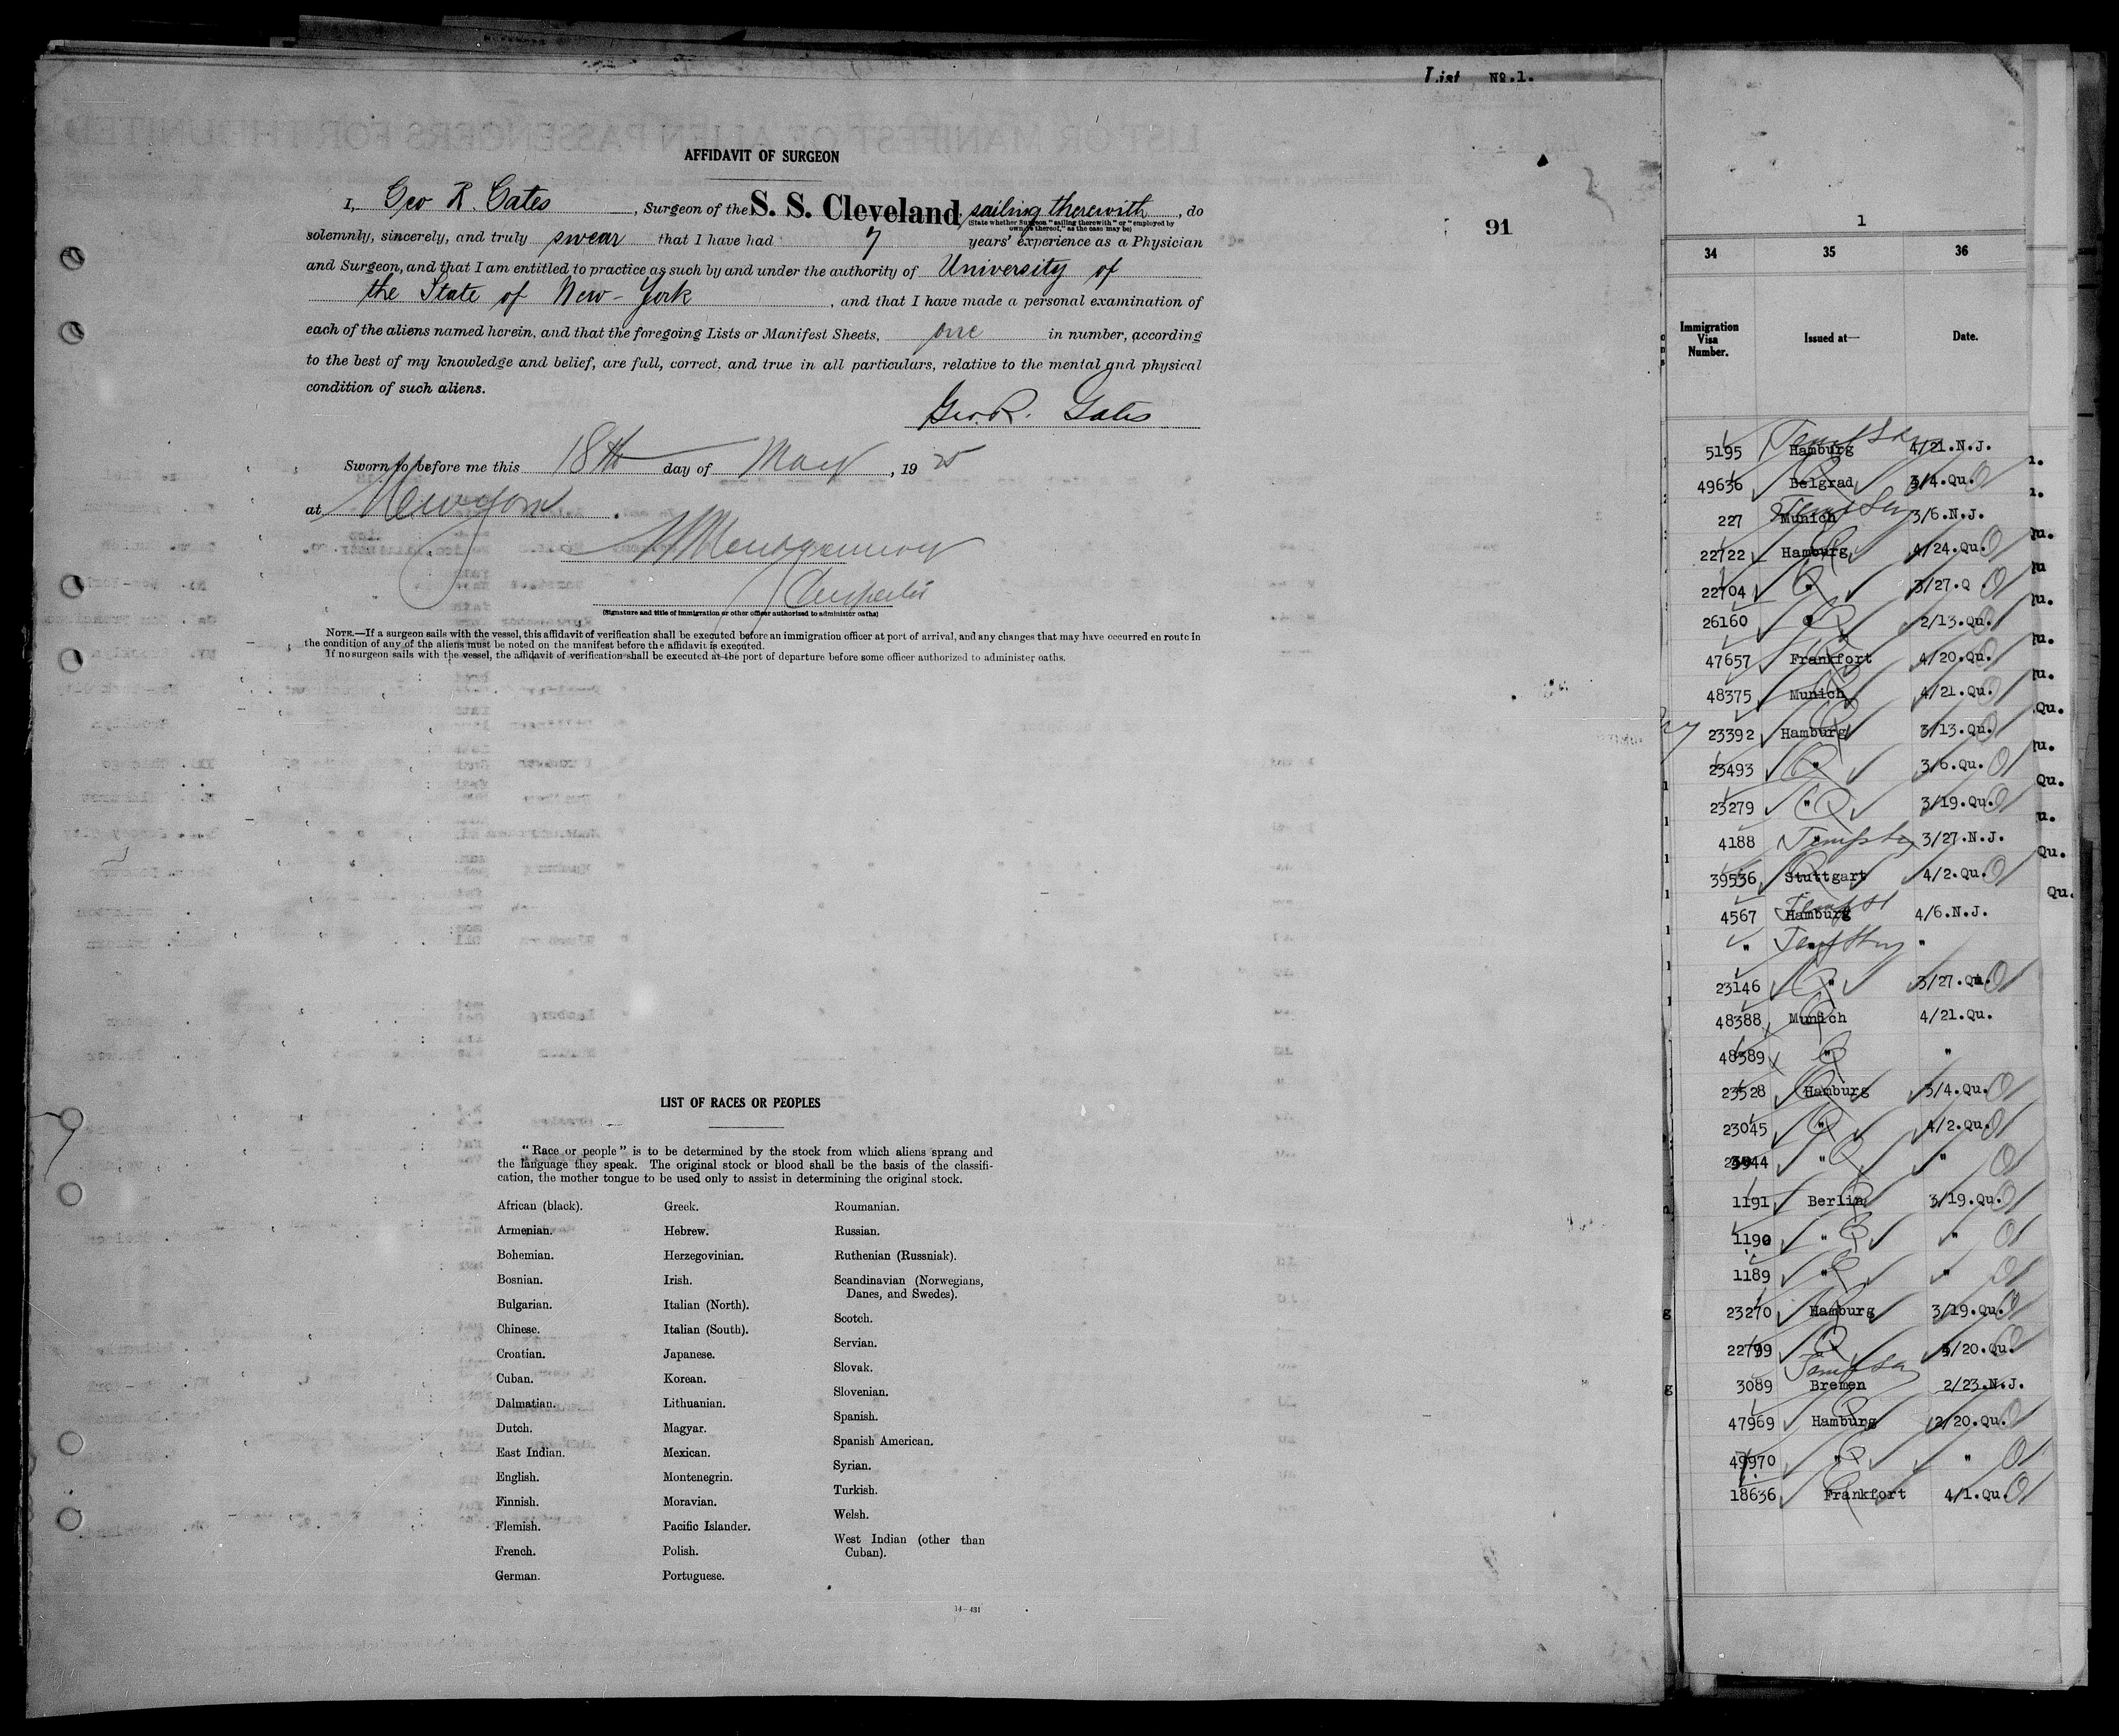 List No.1.
AFFIDAVIT OF SURGEON
I, Geo R. Gates, Surgeon of the S. S. Cleveland, sailing therewith, do
(State whether Surgeon "sailing therewith" or "employed by
owners thereof," as the case may be)
solemnly, sincerely, and truly swear that I have had 7 years' experience as a Physician
and Surgeon, and that I am entitled to practice as such by and under the authority of University of
the State of New-York, and that I have made a personal examination of
each of the aliens named herein, and that the foregoing Lists or Manifest Sheets, one in number, according
to the best of my knowledge and belief, are full, correct, and true in all particulars, relative to the mental and physical
condition of such aliens.
Geo. R. Gates
Sworn to before me this 18th day of May, 1925
at New York.
Montgomery
Inspector
(Signature and title of immigration or other officer authorized to administer oaths)
NOTE.—If a surgeon sails with the vessel, this affidavit of verification shall be executed before an immigration officer at port of arrival, and any changes that may have occurred en route in
the condition of any of the aliens must be noted on the manifest before the affidavit is executed.
If no surgeon sails with the vessel, the affidavit of verification shall be executed at the port of departure before some officer authorized to administer oaths.
91
LIST OF RACES OR PEOPLES
"Race or people" is to be determined by the stock from which aliens sprang and
the language they speak. The original stock or blood shall be the basis of the classifi-
cation, the mother tongue to be used only to assist in determining the original stock.
African (black).
Armenian.
Bohemian.
Bosnian.
Bulgarian.
Chinese.
Croatian.
Cuban.
Dalmatian.
Dutch.
East Indian.
English.
Finnish.
Flemish.
French.
German.
Greek.
Hebrew.
Herzegovinian.
Irish.
Italian (North).
Italian (South).
Japanese.
Korean.
Lithuanian.
Magyar.
Mexican.
Montenegrin.
Moravian.
Pacific Islander.
Polish.
Portuguese.
Roumanian.
Russian.
Ruthenian (Russniak).
Scandinavian (Norwegians,
Danes, and Swedes).
Scotch.
Servian.
Slovak.
Slovenian.
Spanish.
Spanish American.
Syrian.
Turkish.
Welsh.
West Indian (other than
Cuban).
14—431
1
34 35 36
Immigration
Visa
Number.
Issued at—
Date.
5195 Hamburg 4/21.N.J.
49636 Belgrad 3/4.Qu.
227 Munich 3/6.N.J.
22722 Hamburg 4/24.Qu.
22704 " 3/27.Q
26160 " 2/13.Qu.
47657 Frankfort 4/20.Qu.
48375 Munich 4/21.Qu.
23392 Hamburg 3/13.Qu.
23493 " 3/6.Qu.
23279 " 3/19.Qu.
4188 " 3/27.N.J.
39536 Stuttgart 4/2.Qu.
4567 Hamburg 4/6.N.J.
" " "
23146 " 3/27.Qu.
48388 Munich 4/21.Qu.
48389 " "
23528 Hamburg 3/4.Qu.
23045 " 4/2.Qu.
" "
1191 Berlin 3/19.Qu.
1190 " "
1189 " "
23270 Hamburg 3/19.Qu.
22799 " /20.Qu.
3089 Bremen 2/23.N.J.
47969 Hamburg 2/20.Qu.
49970 " "
18636 Frankfort 4/1.Qu.